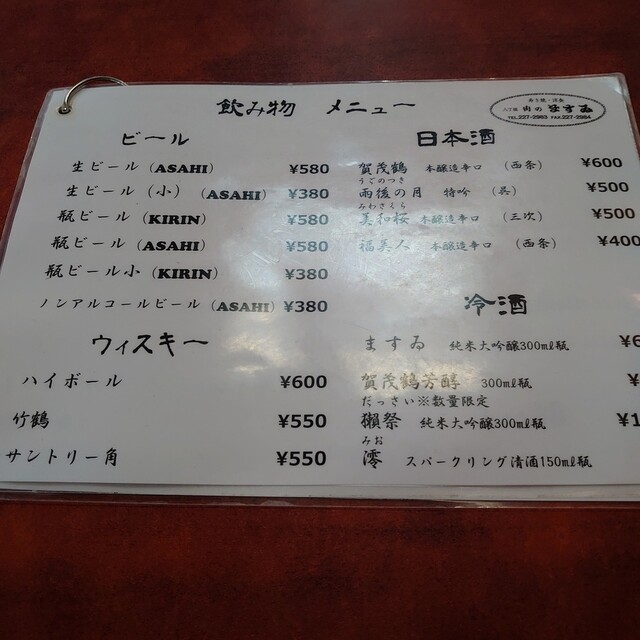 飲み物 メニュー
すき焼・洋食
八丁堀 肉の ますゐ
TEL.227-2983 FAX.227-2984
ビール
生ビール (ASAHI) ¥580
生ビール (小) (ASAHI) ¥380
瓶ビール (KIRIN) ¥580
瓶ビール (ASAHI) ¥580
瓶ビール小 (KIRIN) ¥380
ノンアルコールビール (ASAHI) ¥380
ウィスキー
ハイボール ¥600
竹鶴 ¥550
サントリー角 ¥550
日本酒
賀茂鶴 本醸造辛口 (西条) ¥600
うごのつき
雨後の月 特吟 (呉) ¥500
みわさくら
美和桜 本醸造辛口 (三次) ¥500
福美人 本醸造辛口 (西条) ¥400
冷酒
ますゐ 純米大吟醸300ml瓶
賀茂鶴芳醇 300ml瓶
だっさい※数量限定
獺祭 純米大吟醸300ml瓶
みお
澪 スパークリング清酒150ml瓶